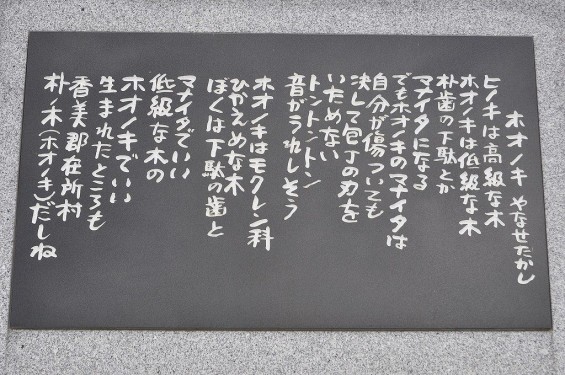 ホオノキ やなせたかし
ヒノキは高級な木
ホオノキは低級な木
朴歯の下駄とか
マナイタになる
でもホオノキのマナイタは
自分が傷ついても
決して包丁の刃を
いためない
トントントン
音がうれしそう
ホオノキはモクレン科
ひかえめな木
ぼくは下駄の歯と
マナイタでいい
低級な木の
ホオノキでいい
生まれたところも
香美郡在所村
朴ノ木(ホオノキ)だしね